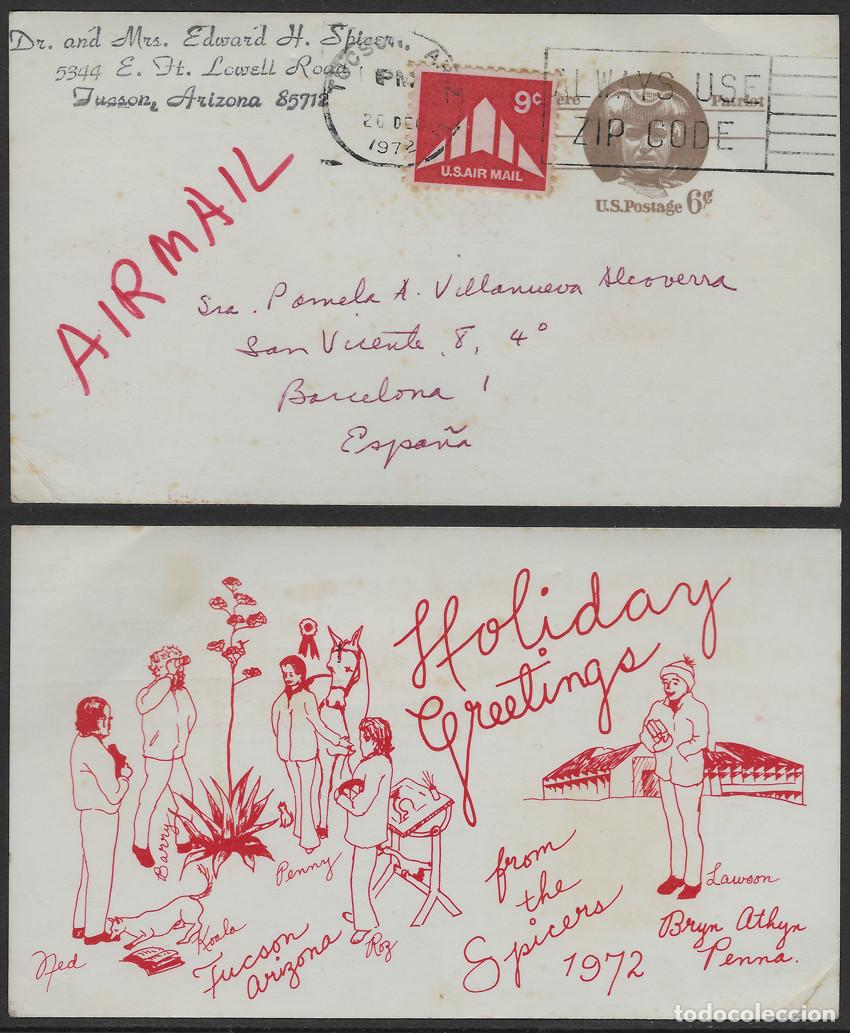 Dr. and Mrs. Edward H. Spicer
5344 E. Ft. Lowell Road
Tucson, Arizona 85712
TUCSON, ARIZ
PM
26 DEC
1972
9¢
U.S. AIR MAIL
ALWAYS USE
ZIP CODE
Patriot
U.S. Postage 6¢
AIRMAIL
Sra. Pamela A. Villanueva Alcoverra
San Vicente, 8, 4º
Barcelona 1
España
Holiday
Greetings
from
the
Spicers
1972
Barry
Penny
Lawson
Bryn Athyn
Penna.
Ned
Koala
Roz
Tucson
Arizona
todocoleccion